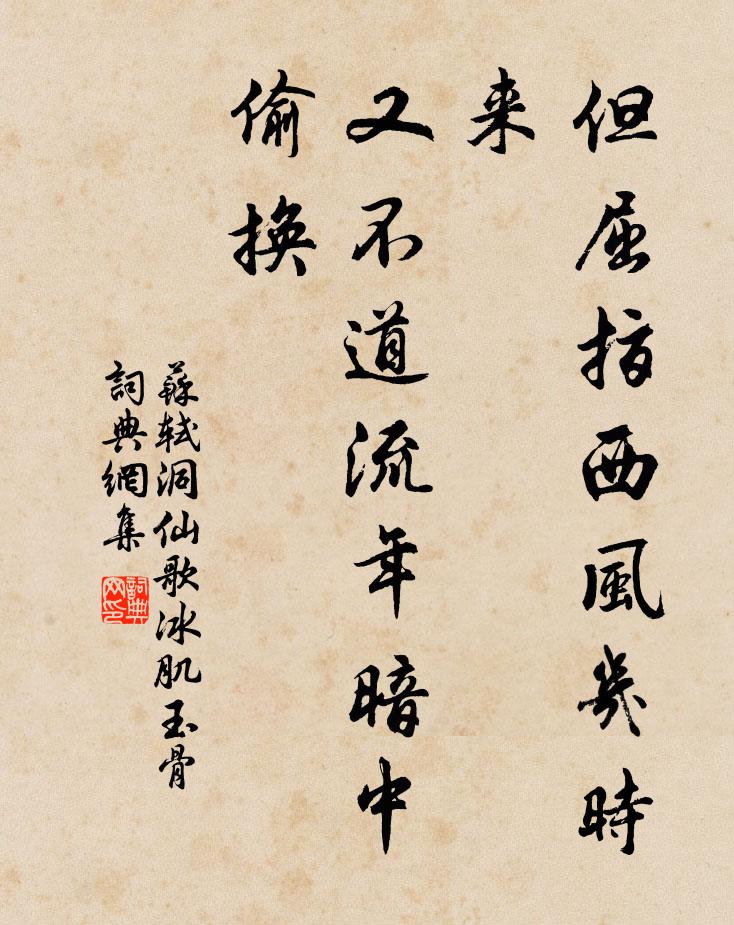 但屈指西風幾時
来
又不道流年暗中
偷换
蘇軾洞仙歌冰肌玉骨
詞典網集
詞典
网印